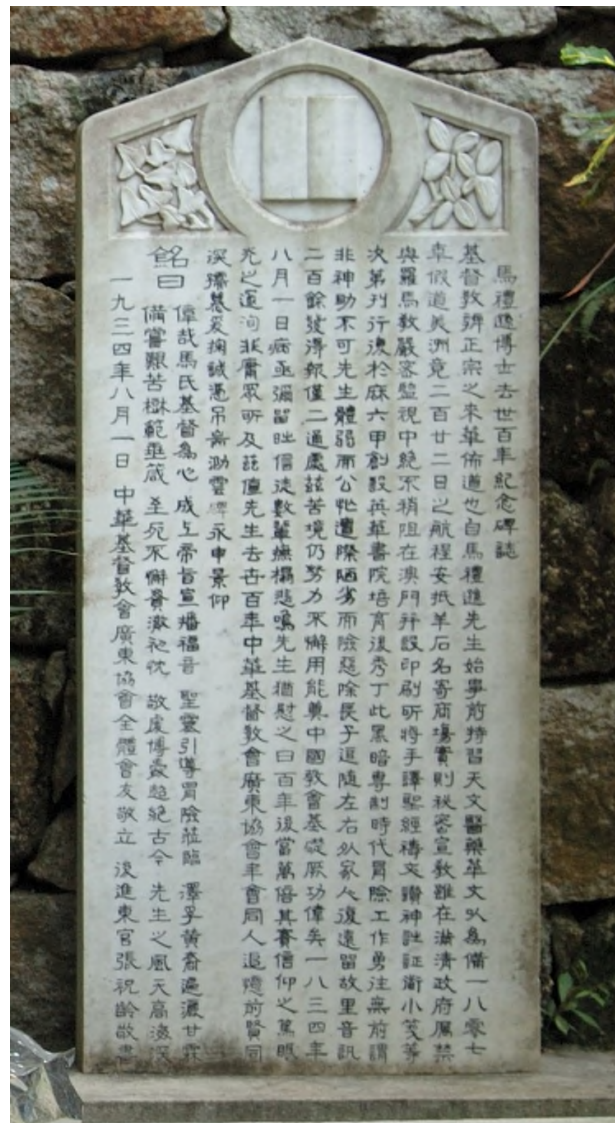 馬禮遜博士去世百年紀念碑誌
基督教辨正宗之來華佈道也自馬禮遜先生始學前特習天文醫藥華文以為備一八零七
卒假道美洲竟二百廿二日之航程安抵羊石名寄商場實則秘密宣教雖在滿清政府厲禁
與羅馬教嚴密監視中絶不稍阻在澳門并設印刷所將手譯聖經禱文讚神詩証衛小箋等
次第刊行復於麻六甲創設英華書院培育後秀丁此黑暗專制時代冒險工作勇往無前謂
非神助不可先生體弱而公忙遭際陋劣而險惡除長子追隨左右外家人復遠留故里音訊
二百餘發得報僅二通處茲苦境仍努力不懈用能奠中國教會基礎厥功偉矣一八三四年
八月一日病亟彌留時信徒數輩撫榻悲鳴先生猶慰之曰百年後當萬倍其賽信仰之篤眼
光之遠洵非庸眾所及茲值先生去世百年中華基督教會廣東協會年會同人追憶前賢同
深孺慕爰掬誠憑吊兼泐靈碑永申景仰
銘曰 偉哉馬氏基督為心 成上帝旨宣播福音 聖靈引導冒險蒞臨 澤孚黃裔遍灑甘霖
備嘗艱苦樹範垂箴 至死不懈貫澈初忱 敬虔博愛超絶古今 先生之風天高海深
一九三四年八月一日 中華基督教會廣東協會全體會友敬立 後進東官張祝齡敬書